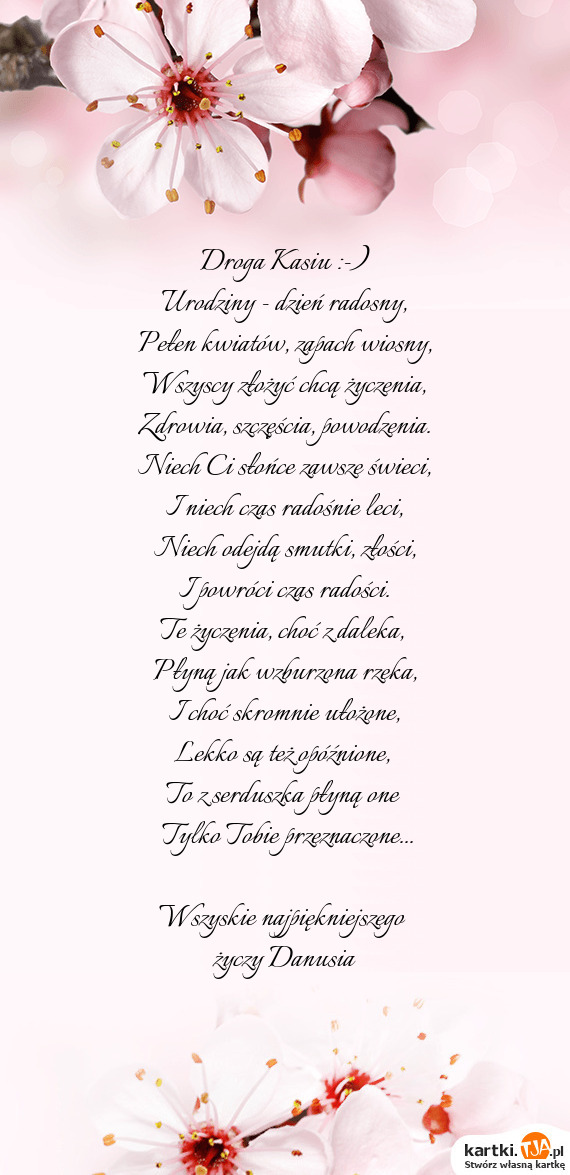 Droga Kasiu :-)
Urodziny - dzień radosny,
Pełen kwiatów, zapach wiosny,
Wszyscy złożyć chcą życzenia,
Zdrowia, szczęścia, powodzenia.
Niech Ci słońce zawsze świeci,
I niech czas radośnie leci,
Niech odejdą smutki, złości,
I powróci czas radości.
Te życzenia, choć z daleka,
Płyną jak wzburzona rzeka,
I choć skromnie ułożone,
Lekko są też opóźnione,
To z serduszka płyną one
Tylko Tobie przeznaczone...
Wszyskie najpiękniejszego
życzy Danusia
kartki.TJA.pl
Stwórz własną kartkę